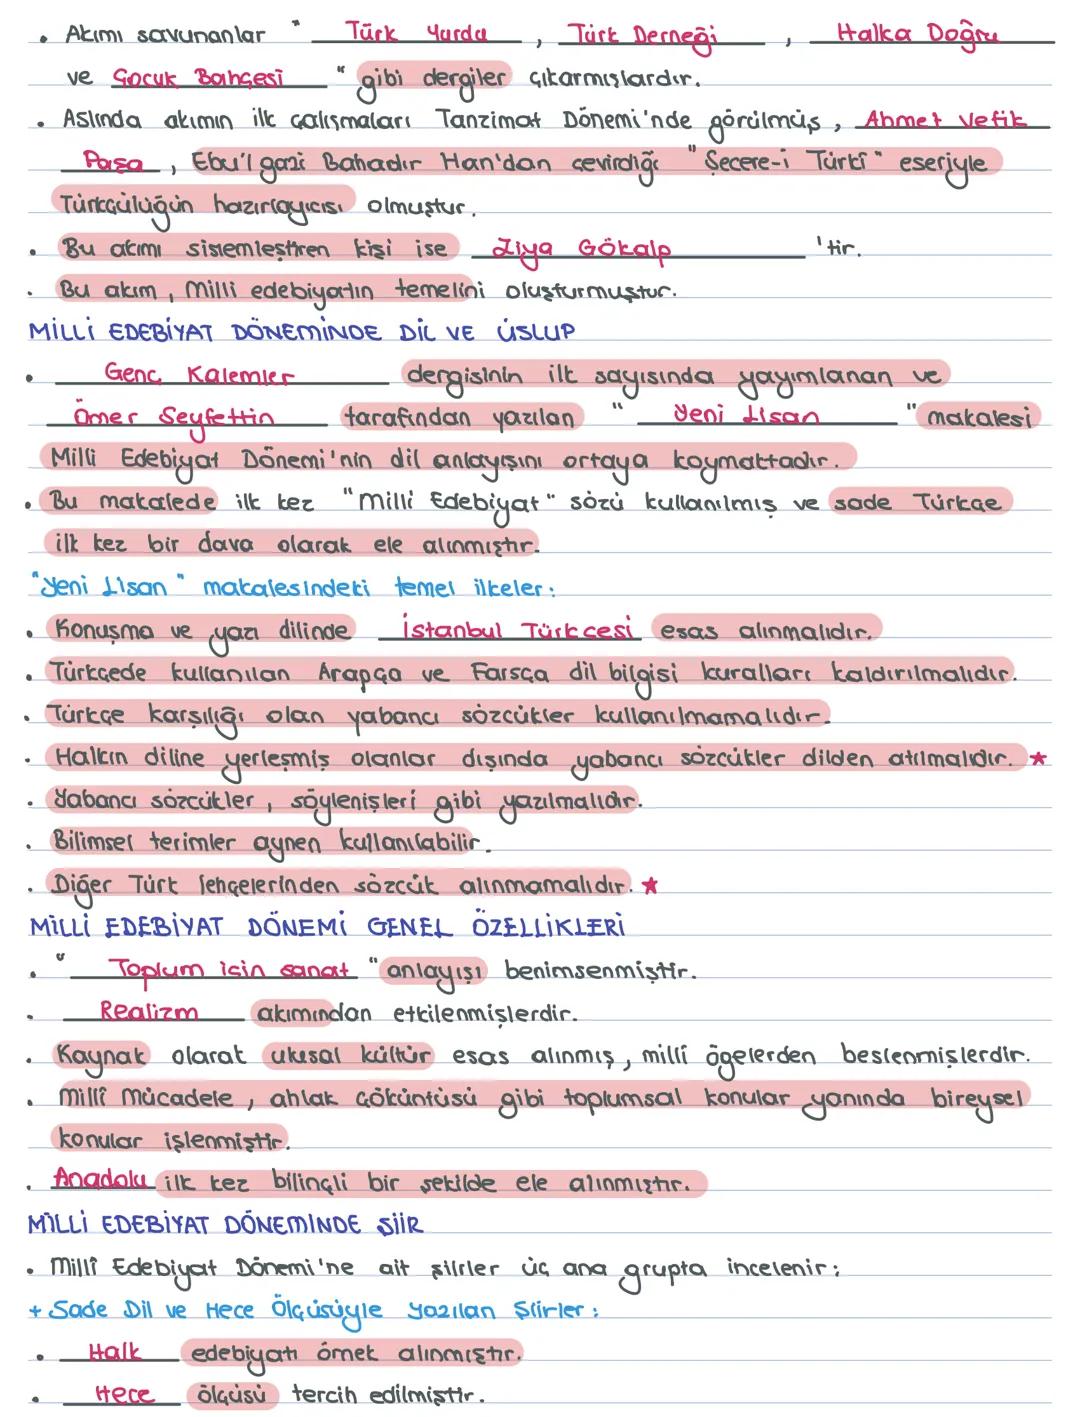 • Akımı savunanlar " Türk Yurdu , Türk Derneği , Halka Doğru
ve Çocuk Bahçesi " gibi dergiler çıkarmışlardır.
• Aslında akımın ilk çalışmaları Tanzimat Dönemi'nde görülmüş , Ahmet Vefik
Paşa , Ebu'l gazi Bahadır Han'dan çevirdiği "Şecere-i Türkî" eseriyle
Türkçülüğün hazırlayıcısı olmuştur.
• Bu akımı sistemleştiren kişi ise Ziya Gökalp 'tir.
• Bu akım , Milli edebiyatın temelini oluşturmuştur.
MİLLİ EDEBİYAT DÖNEMİNDE DİL VE ÜSLUP
• Genç Kalemler dergisinin ilk sayısında yayımlanan ve
Ömer Seyfettin tarafından yazılan " Yeni Lisan " makalesi
Milli Edebiyat Dönemi'nin dil anlayışını ortaya koymaktadır.
• Bu makalede ilk kez "Milli Edebiyat" sözü kullanılmış ve sade Türkçe
ilk kez bir dava olarak ele alınmıştır.
"Yeni Lisan" makalesindeki temel ilkeler:
• Konuşma ve yazı dilinde İstanbul Türkçesi esas alınmalıdır.
• Türkçede kullanılan Arapça ve Farsça dil bilgisi kuralları kaldırılmalıdır.
• Türkçe karşılığı olan yabancı sözcükler kullanılmamalıdır.
• Halkın diline yerleşmiş olanlar dışında yabancı sözcükler dilden atılmalıdır. ★
• Yabancı sözcükler , söylenişleri gibi yazılmalıdır.
• Bilimsel terimler aynen kullanılabilir.
• Diğer Türk lehçelerinden sözcük alınmamalıdır. ★
MİLLİ EDEBİYAT DÖNEMİ GENEL ÖZELLİKLERİ
• " Toplum için sanat " anlayışı benimsenmiştir.
• Realizm akımından etkilenmişlerdir.
• Kaynak olarak ulusal kültür esas alınmış , millî ögelerden beslenmişlerdir.
• Millî Mücadele , ahlak çöküntüsü gibi toplumsal konular yanında bireysel
konular işlenmiştir.
• Anadolu ilk kez bilinçli bir şekilde ele alınmıştır.
MİLLİ EDEBİYAT DÖNEMİNDE ŞİİR
• Millî Edebiyat Dönemi'ne ait şiirler üç ana grupta incelenir;
+ Sade Dil ve Hece Ölçüsüyle Yazılan Şiirler:
• Halk edebiyatı örnek alınmıştır.
• Hece ölçüsü tercih edilmiştir.